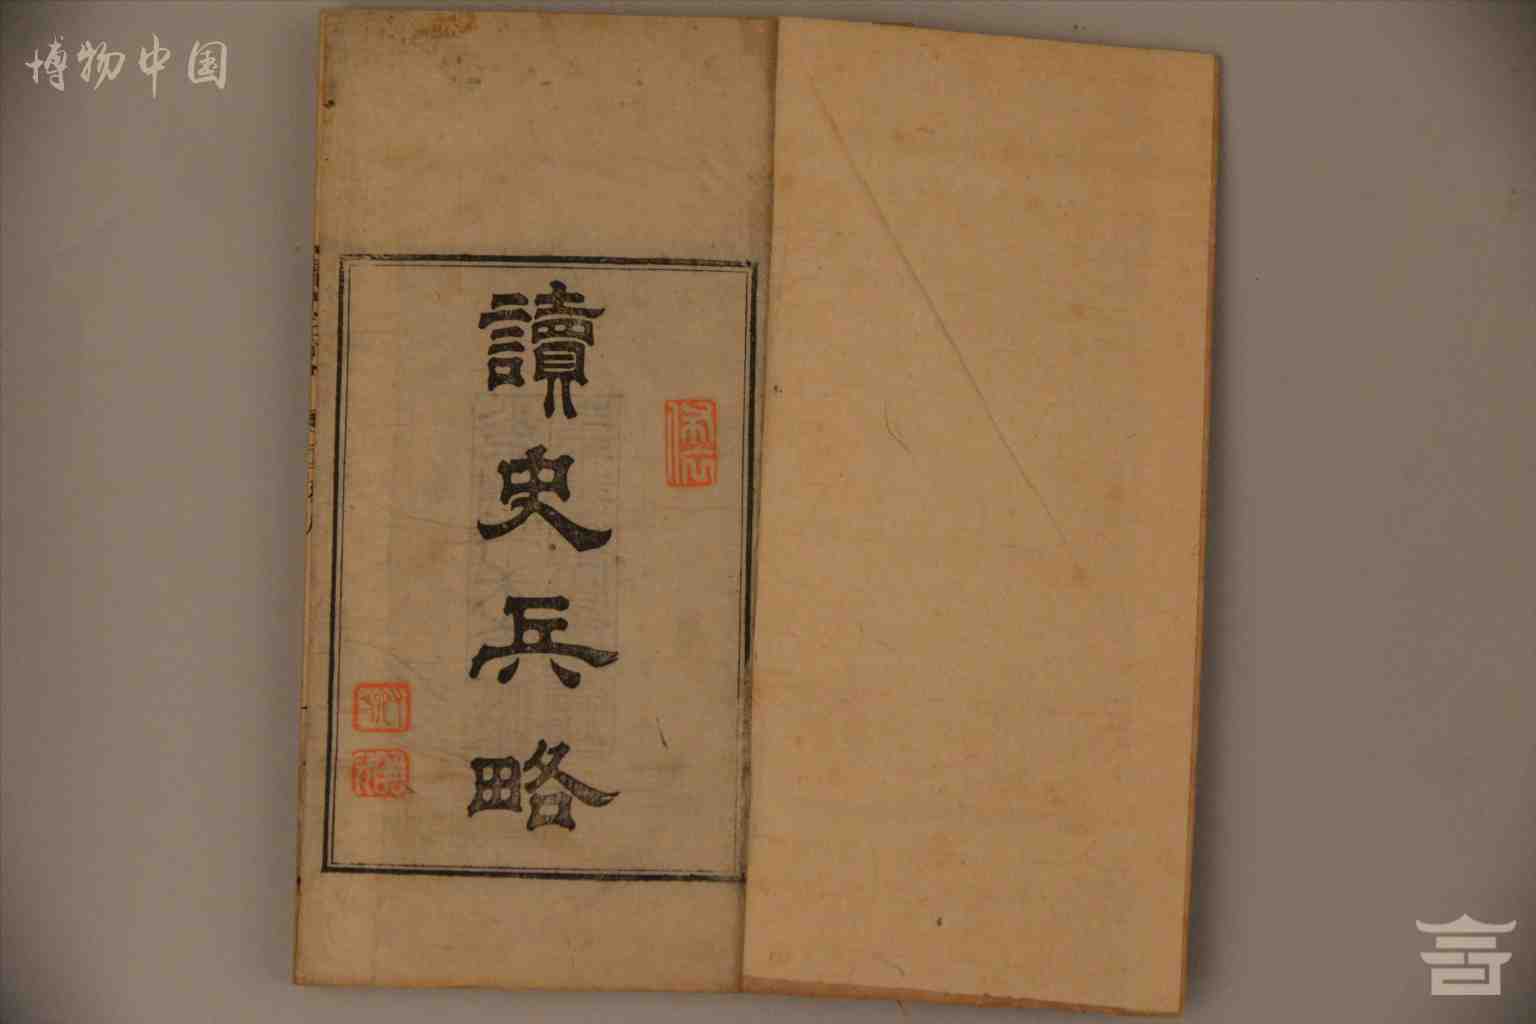 博物中国
讀史兵略